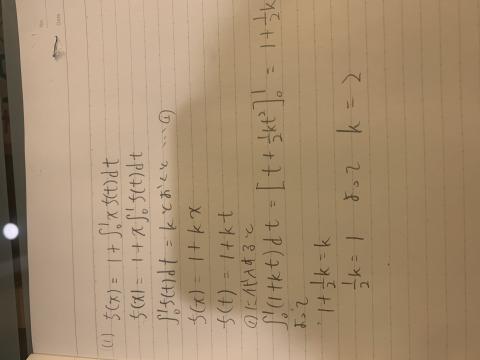 (1) f(x) = 1 + ∫₀¹ x f(t) dt
f(x) = 1 + x ∫₀¹ f(t) dt
∫₀¹ f(t) dt = k とおくと …①
f(x) = 1 + kx
f(t) = 1 + kt
①に代入すると
∫₀¹ (1 + kt) dt = [t + ½kt²]₀¹ = 1 + ½k
よって
1 + ½k = k
½k = 1 よって k = 2